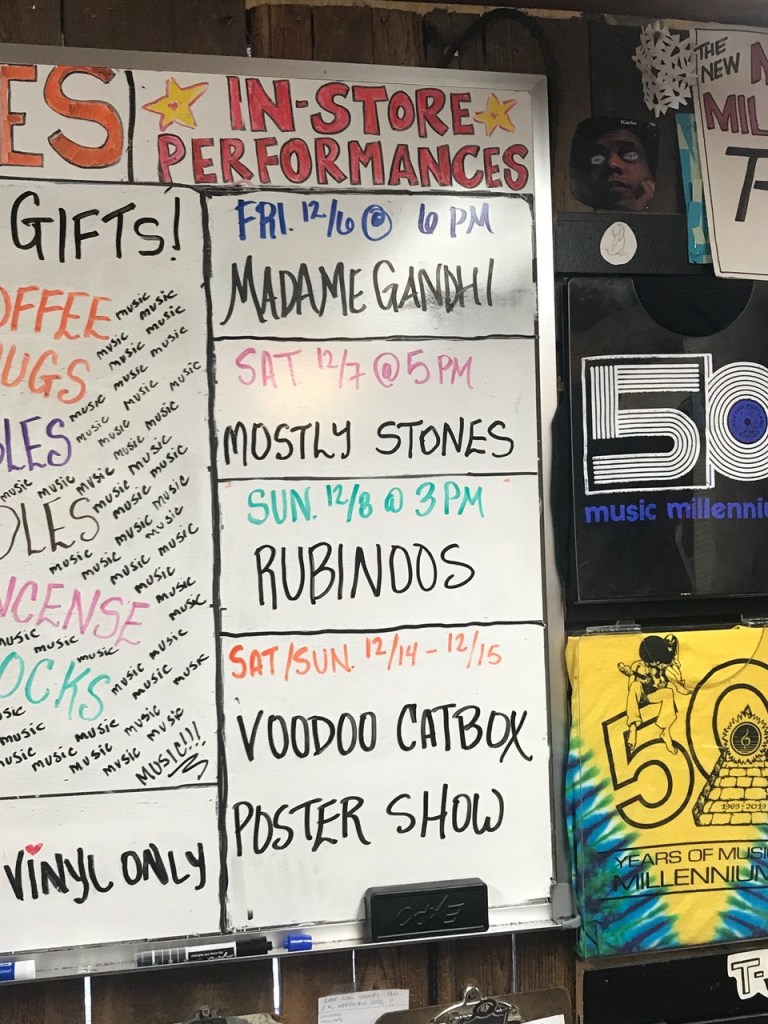 ES
IN-STORE
PERFORMANCES
GIFTS!
OFFEE
UGS
LES
OLES
NCENSE
OCKS
music music
music music
music music
music music
music music
music music music
music music
music music music
music music
music music music music
music music music
music music
music music
music music
music music
music
music
music music
music music
music music
music music
music music music
music music
MUSIC!!!
VINYL ONLY
FRI. 12/6 @ 6 PM
MADAME GANDHI
SAT 12/7 @ 5 PM
MOSTLY STONES
SUN. 12/8 @ 3 PM
RUBINOOS
SAT/SUN. 12/14 - 12/15
VOODOO CATBOX
POSTER SHOW
EXPO
THE
NEW M
MIL
T-
50
music millenniu
50
1969-2019
YEARS OF MUSI
MILLENNIUM
T-